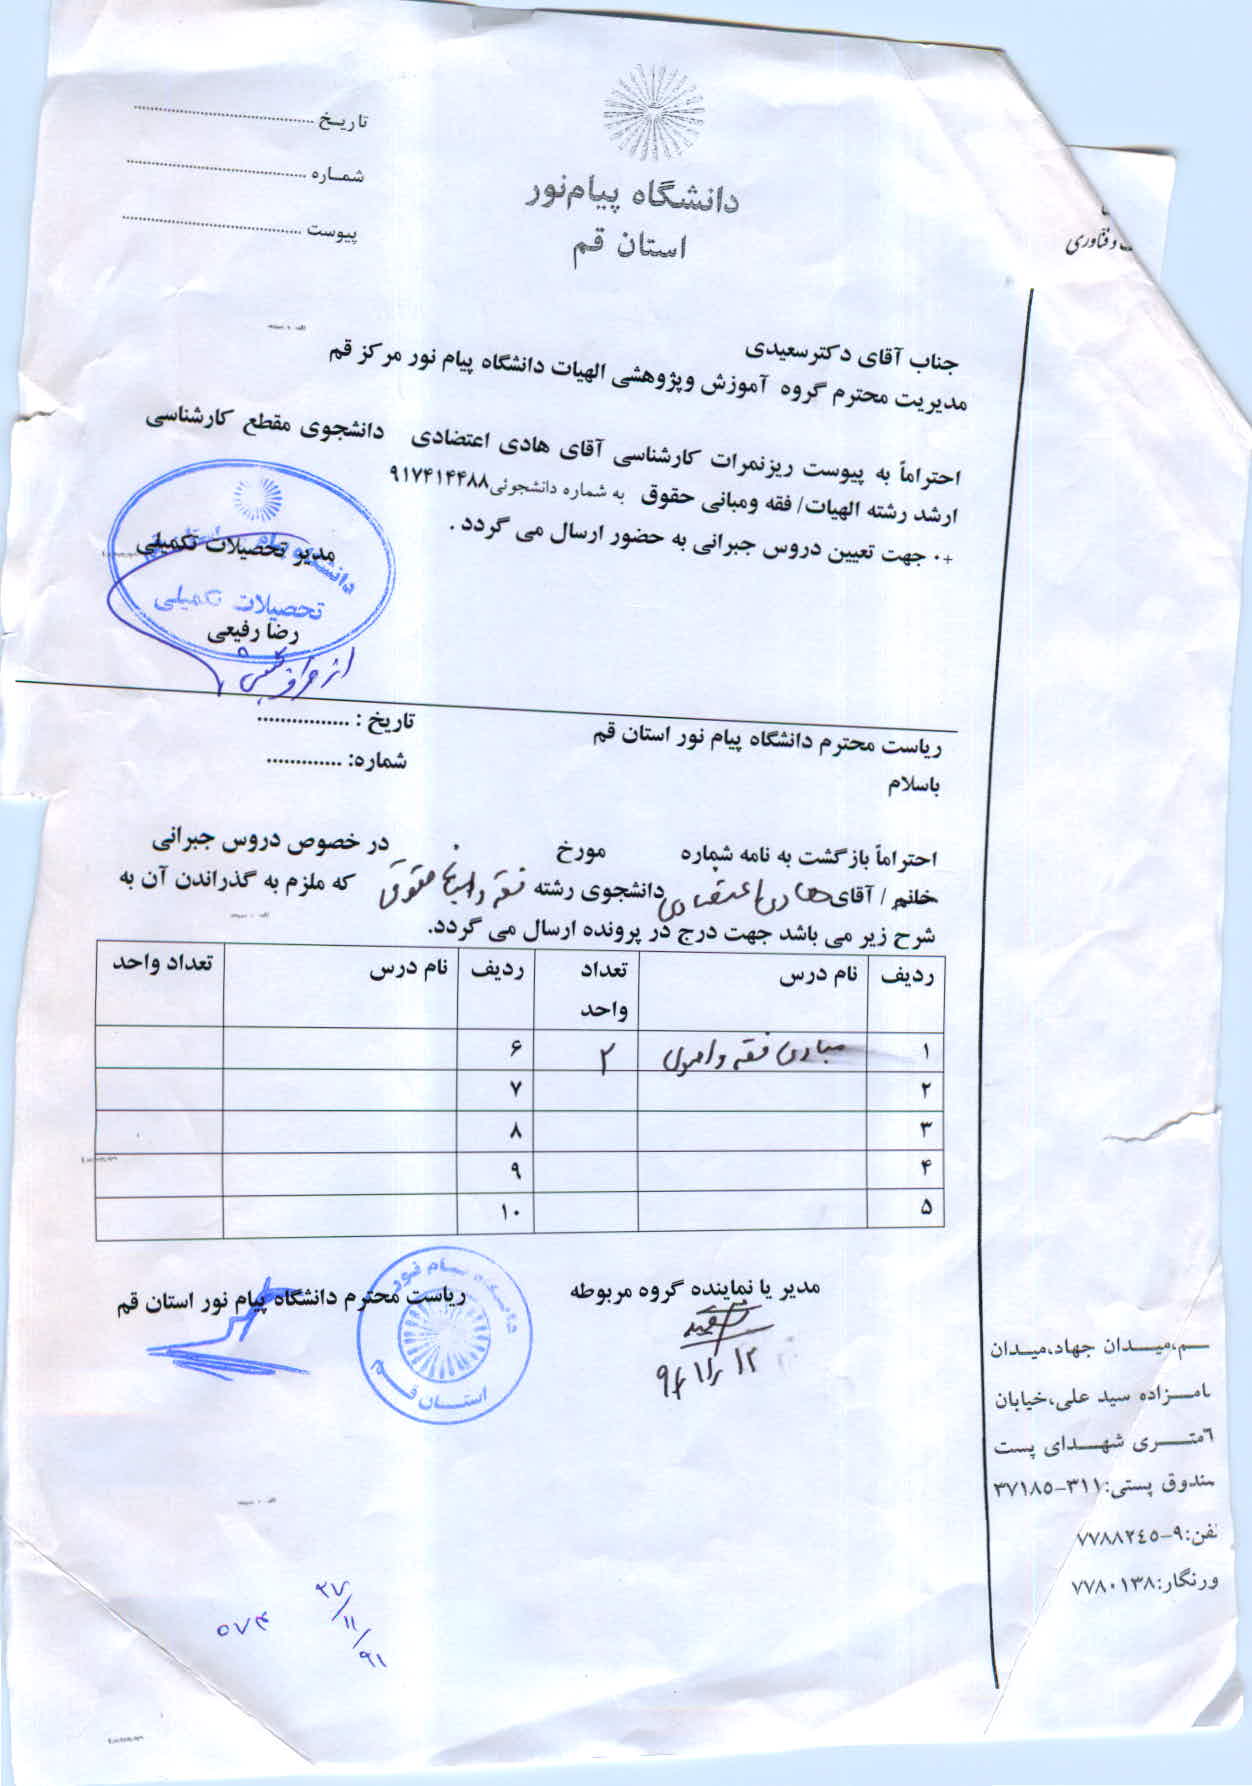 دانشگاه پیام‌نور
استان قم
تاریخ ............
شماره ............
پیوست ............
و فنّاوری
جناب آقای دکترسعیدی
مدیریت محترم گروه آموزش وپژوهشی الهیات دانشگاه پیام نور مرکز قم
احتراماً به پیوست ریزنمرات کارشناسی آقای هادی اعتضادی دانشجوی مقطع کارشناسی
ارشد رشته الهیات/ فقه ومبانی حقوق به شماره دانشجوئی۹۱۷۴۱۴۴۸۸
۰+ جهت تعیین دروس جبرانی به حضور ارسال می گردد .
مدیر تحصیلات تکمیلی
دانشگاه پیام
تحصیلات تکمیلی
رضا رفیعی
از طرف
ریاست محترم دانشگاه پیام نور استان قم
تاریخ : ................
باسلام
شماره: .............
احتراماً بازگشت به نامه شماره مورخ در خصوص دروس جبرانی
خانم / آقای هادی اعتضادی دانشجوی رشته فقه و مبانی حقوق که ملزم به گذراندن آن به
شرح زیر می باشد جهت درج در پرونده ارسال می گردد.
ردیف نام درس تعداد واحد ردیف نام درس تعداد واحد
۱ مبادی فقه و اصول ۲ ۶
۲ ۷
۳ ۸
۴ ۹
۵ ۱۰
مدیر یا نماینده گروه مربوطه
ریاست محترم دانشگاه پیام نور استان قم
دانشگاه پیام نور
استان قم
ـم،میدان جهاد،میدان
امزاده سید علی،خیابان
٦متری شهدای پست
ندوق پستی:۳۱۱-۳۷۱۸۵
فن:۹-۷۷۸۸۲٤٥
ورنگار:۷۷۸۰۱۳۸
۲۷/۱۱/۹۱
۵۷۴